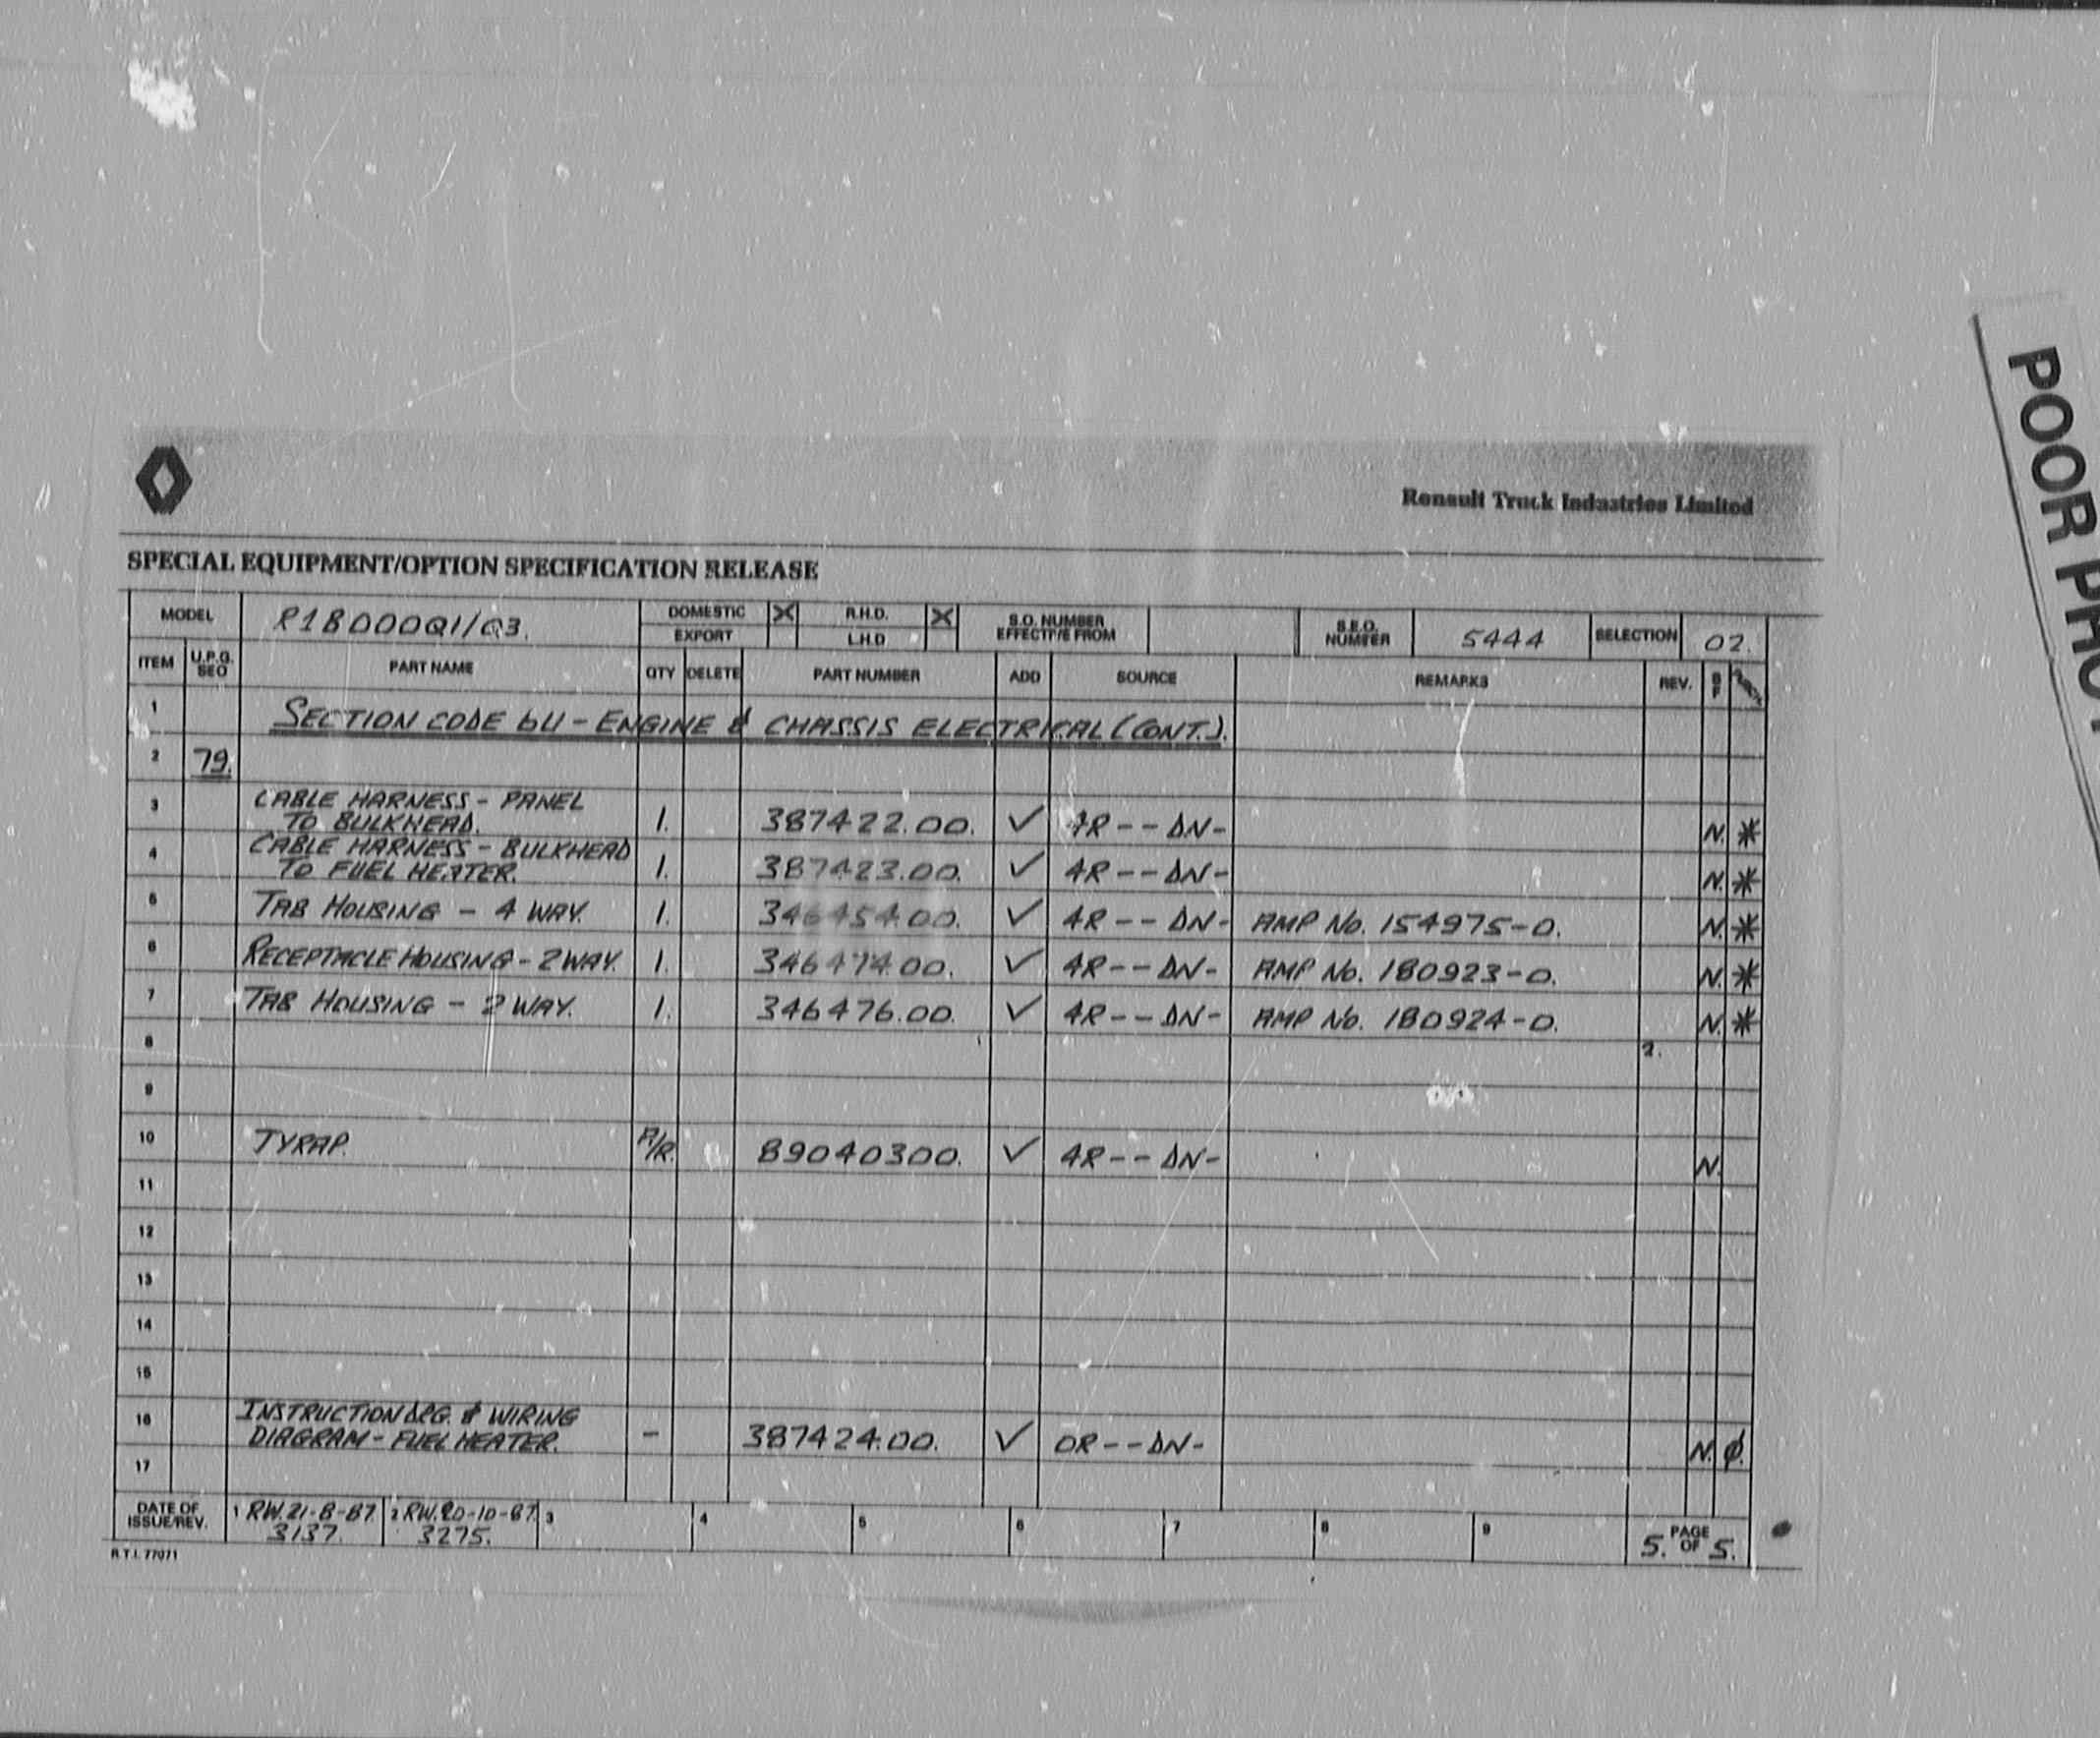 POOR PHO
Renault Truck Industries Limited
SPECIAL EQUIPMENT/OPTION SPECIFICATION RELEASE
MODEL R18000Q1/Q3. DOMESTIC X R.H.D. X S.O. NUMBER EFFECTIVE FROM S.E.O. NUMBER 5444 SELECTION 02.
EXPORT L.H.D
ITEM U.P.G. SEQ PART NAME QTY DELETE PART NUMBER ADD SOURCE REMARKS REV.
1 SECTION CODE 6U - ENGINE & CHASSIS ELECTRICAL (CONT.).
2 79.
3 CABLE HARNESS - PANEL
TO BULKHEAD. 1. 387422.00. ✓ 4R--DN- N. *
4 CABLE HARNESS - BULKHEAD
TO FUEL HEATER. 1. 387423.00. ✓ 4R--DN- N. *
5 TAB HOUSING - 4 WAY. 1. 346454.00. ✓ 4R--DN- AMP No. 154975-0. N. *
6 RECEPTACLE HOUSING - 2 WAY. 1. 346474.00. ✓ 4R--DN- AMP No. 180923-0. N. *
7 TAB HOUSING - 2 WAY. 1. 346476.00. ✓ 4R--DN- AMP No. 180924-0. N. *
8 2.
9
10 TYRAP. A/R. 89040300. ✓ 4R--DN- N.
11
12
13
14
15
16 INSTRUCTION DRG. & WIRING
DIAGRAM - FUEL HEATER. - 387424.00. ✓ 0R--DN- N. φ.
17
DATE OF ISSUE/REV. 1 RW. 21-8-87. 2 RW. 20-10-87. 3 4 5 6 7 8 9 5. PAGE OF 5.
3137. 3275.
R.T.I. 77071